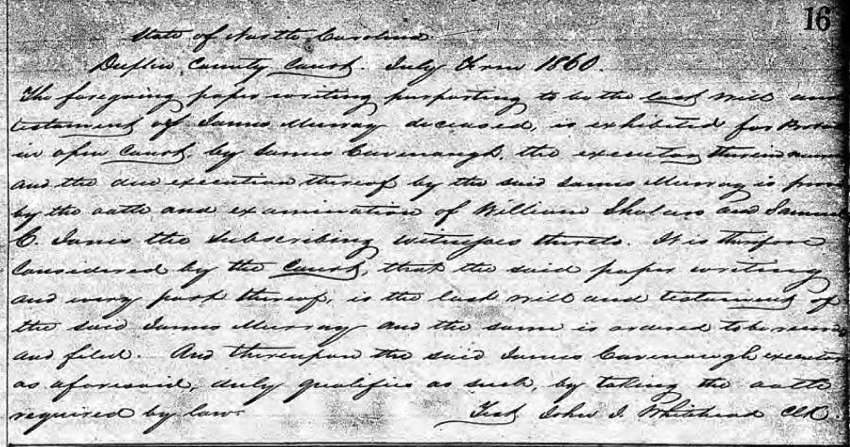 16
State of North Carolina
Duplin County Court. July Term 1860.
The foregoing paper writing purporting to be the last will and
testament of James Murray deceased, is exhibited for Proba
in open Court by James Cavenaugh, the executor therein nam
and the due execution thereof by the said James Murray is prov
by the oath and examination of William and Samuel
C. James the subscribing witnesses thereto. It is therefore
Considered by the Court, that the said paper writing
and every part thereof, is the last will and testament of
the said James Murray and the same is ordered to be recor
and filed. And thereupon the said James Cavenaugh executor
as aforesaid, duly qualifies as such, by taking the oath
required by law. Test John J. Whitehead Clk.